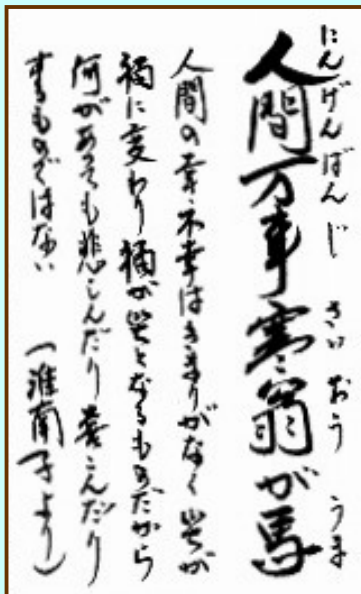 にんげんばんじ さいおう うま
人間万事塞翁が馬
人間の幸、不幸はきまりがなく 災が
福に変わり 福が災となるものだから
何があっても悲しんだり喜こんだり
するものではない （淮南子より）